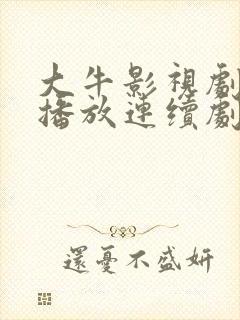 大牛影視劇
播放連續劇
還憂不盛妍